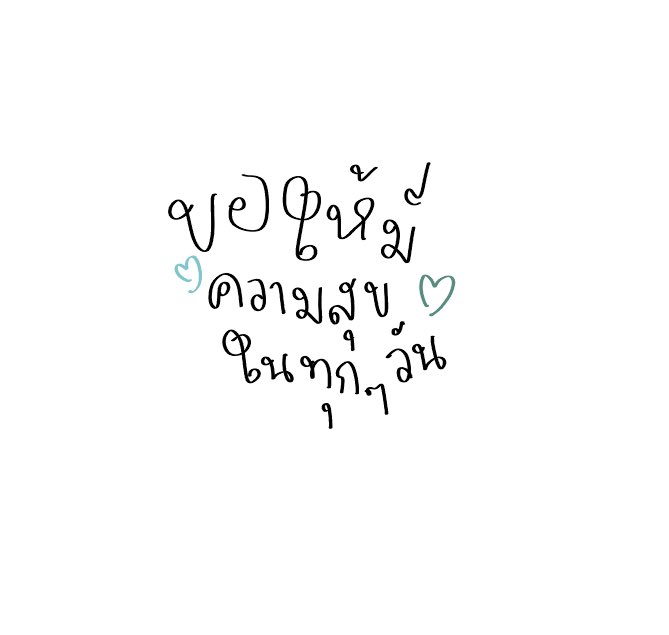 ขอให้มี
ความสุข
ในทุกๆวัน